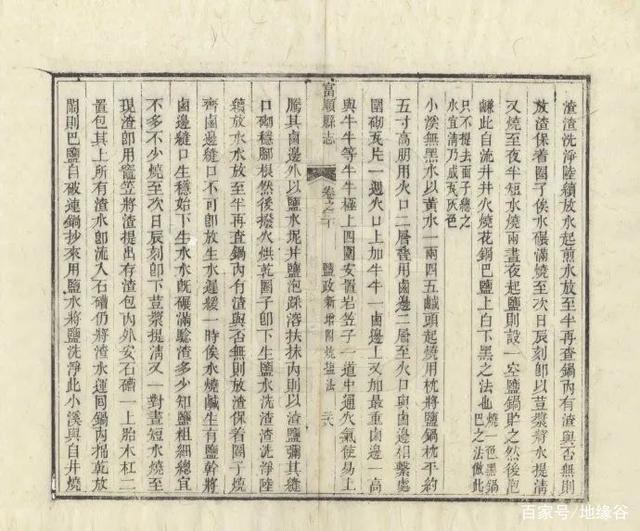 渣渣洗淨陸續放水起煎水放至半再查鍋內有渣與否無則
放渣保着圈子俟水碾滿燒至次日辰刻卽以荳漿將水提淸
又燒至夜半短水燒兩晝夜起鹽則設一空鹽鍋第之然後胞
鹻此自流井井火燒花鍋巴鹽上白下黑之法也
燒一色黑鍋巴之法倣此
只不提去面子總之水宜淸乃成炭灰色
小溪無黑水以黃水一兩四五鹹頭起燒用枕將鹽鍋枕平約
五寸高朋用火口二層叠用鹵邊二層至火口與鹵邊相繫處
圍砌炭片一週火口上加牛牛一鹵邊上又加最重鹵邊一高
與牛牛等牛牛極上四圍安置岩笠子一道中通火氣使易上
富順縣志
卷之三
鹽政新增附燒鹽法
騰其鹵邊外以鹽水坭并鹽泡踩溶扶抹內則以渣鹽彌其縫
口砌穩腳根然後撥火烘乾圈子卽下生鹽水洗渣渣洗淨陸
續放水水放至半再查鍋內有渣與否無則放渣保者圈子燒
齊鹵邊縫口不可卽放生水遲緩一時俟水燒鹹生有鹽幹將
鹵邊縫口生穩始下生水水旣碾滿騐渣多少知鹽粗細總宜
不多不少燒至次日辰刻卽下荳漿提淸又一對晝短水燒至
現渣卽用竈笠將渣提出存渣包內外安石磺一上胎木杠二
置包其上所有渣水卽流入石磺仍將渣水運囘鍋內掯乾放
鬧則巴鹽自破連鍋抄來用鹽水將鹽洗淨此小溪與自井燒
百家号/地缘谷